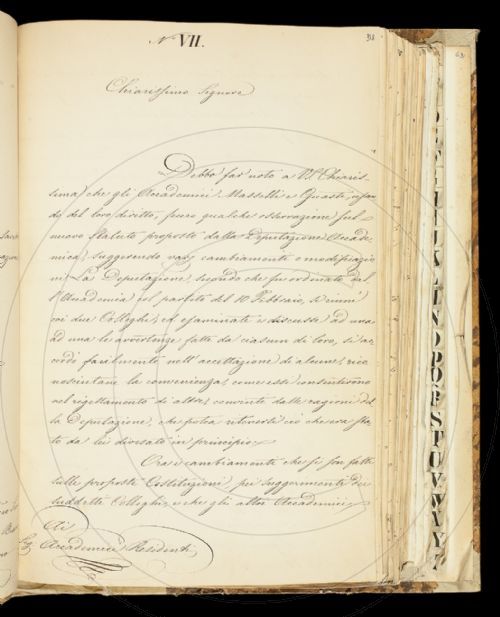 N.° VII.
38
Chiarissimo Signore
Debbo far noto a V.S. Chiaris-
sima, che gli Accademici Masselli e Guasti, usan-
do del loro diritto, fecero qualche osservazione sul
nuovo Statuto proposto dalla Deputazione Accade-
mica, suggerendo varj cambiamenti o modificazio-
ni. La Deputazione, secondo che fu ordinato dal-
l'Accademia pel partito del 10 Febbraio, si riunì
coi due Colleghi, ed esaminate e discusse ad una
ad una le avvertenze fatte da ciascun di loro, si ac-
cordò facilmente nell'accettazione di alcune, rico-
nosciutane la convenienza, come essi consentirono
nel rigettamento di altre, convinti dalle ragioni del-
la Deputazione, che potea ritenersi ciò che era sta-
to da lei divisato in principio.
Ora i cambiamenti che si son fatti
sulle proposte Costituzioni, pei suggerimenti dei
suddetti Colleghi, e che gli altri Accademici
Ai
Sigg. Accademici Residenti
63
L
N
O
P
Q
R
S
T
U
V
W
X
Y
Z